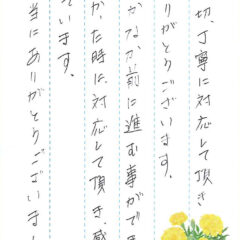 切、丁寧に対応して頂き
りがとうございます。
かなか前に進む事がで
かった時に、対応して頂き、感
ています。
当にありがとうございまし